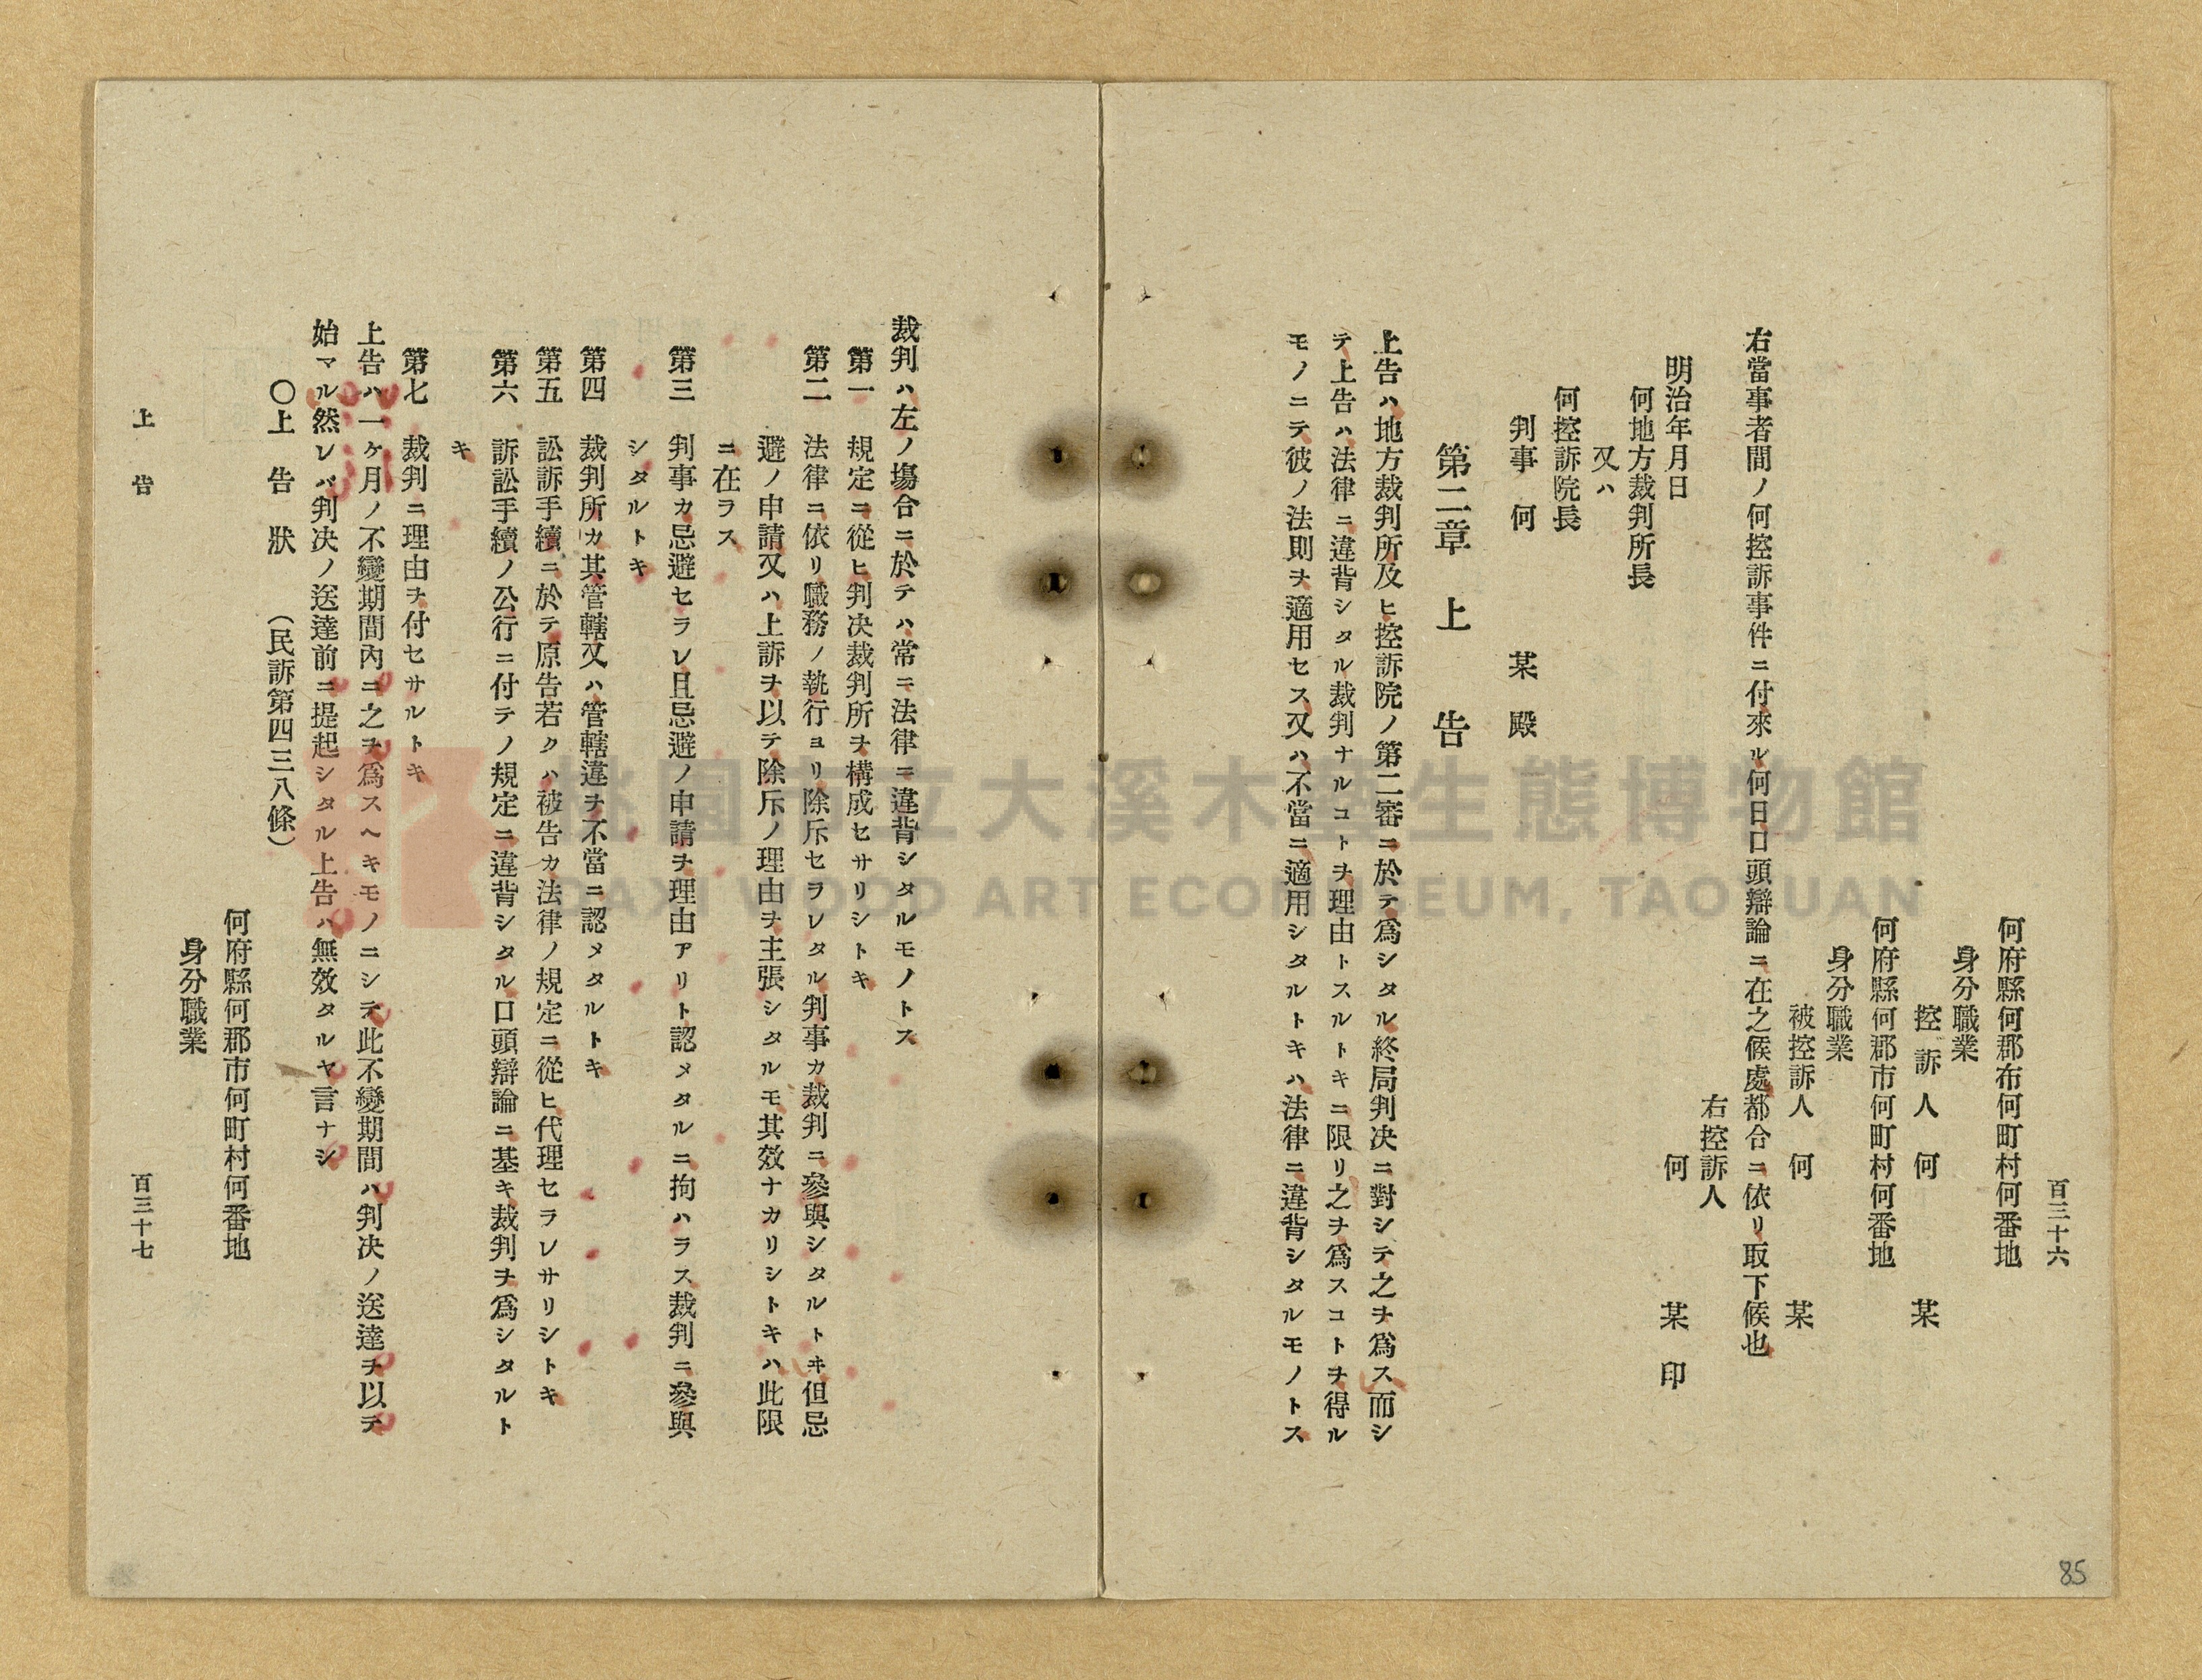 百三十六
何府縣何郡布何町村何番地
身分職業
控訴人　何　某
何府縣何郡市何町村何番地
身分職業
被控訴人　何　某
右當事者間ノ何控訴事件ニ付來ル何日口頭辯論ニ在之候處都合ニ依リ取下候也
右控訴人
何　某　印
明治年月日
何地方裁判所長
又ハ
何控訴院長
判事　何　某　殿
第二章　上　告
上告ハ地方裁判所及ヒ控訴院ノ第二審ニ於テ爲シタル終局判决ニ對シテ之ヲ爲ス而シ
テ上告ハ法律ニ違背シタル裁判ナルコトヲ理由トスルトキニ限リ之ヲ爲スコトヲ得ル
モノニテ彼ノ法則ヲ適用セス又ハ不當ニ適用シタルトキハ法律ニ違背シタルモノトス
裁判ハ左ノ塲合ニ於テハ常ニ法律ニ違背シタルモノトス
第一　規定ニ從ヒ判决裁判所ヲ構成セサリシトキ
第二　法律ニ依リ職務ノ執行ヨリ除斥セラレタル判事カ裁判ニ參與シタルトキ但忌
避ノ申請又ハ上訴ヲ以テ除斥ノ理由ヲ主張シタルモ其效ナカリシトキハ此限
ニ在ラス
第三　判事カ忌避セラレ且忌避ノ申請ヲ理由アリト認メタルニ拘ハラス裁判ニ參與
シタルトキ
第四　裁判所カ其管轄又ハ管轄違ヲ不當ニ認メタルトキ
第五　訟訴手續ニ於テ原告若クハ被告カ法律ノ規定ニ從ヒ代理セラレサリシトキ
第六　訴訟手續ノ公行ニ付テノ規定ニ違背シタル口頭辯論ニ基キ裁判ヲ爲シタルト
キ
第七　裁判ニ理由ヲ付セサルトキ
上告ハ一ケ月ノ不變期間內ニ之ヲ爲スヘキモノニシテ此不變期間ハ判决ノ送達ヲ以テ
始マル然レバ判决ノ送達前ニ提起シタル上告ハ無效タルヤ言ナシ
○上　告　狀　（民訴第四三八條）
何府縣何郡市何町村何番地
身分職業
上　告
百三十七
85
桃園市立大溪木藝生態博物館
DAXI WOOD ART ECOMUSEUM, TAOYUAN